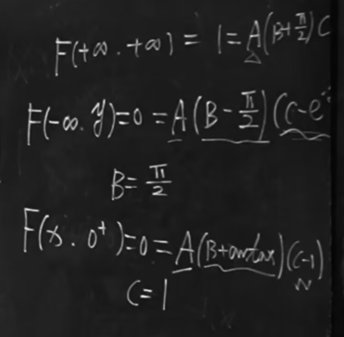 F(+∞. +∞) = 1 = A(B+π/2)C
F(-∞. y)=0 = A(B-π/2)(C-e
B= π/2
F(x. 0⁺)=0= A(B+arctanx)(C-1)
C=1